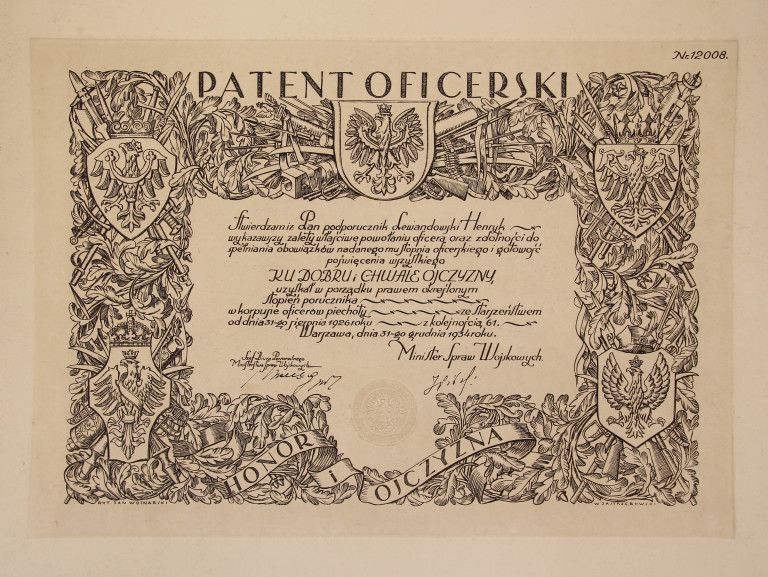 Nr. 12008.
PATENT OFICERSKI
Stwierdzam iż Pan podporucznik Lewandowski Henryk
wykazawszy zalety właściwe powołaniu oficera oraz zdolności do
spełniania obowiązków nadanego mu stopnia oficerskiego i gotowość
poświęcenia wszystkiego
KU DOBRU i CHWALE OJCZYZNY,
uzyskał w porządku prawem określonym
stopień porucznika
w korpusie oficerów piechoty ze starszeństwem
od dnia 31-go sierpnia 1926 roku z kolejnością 61.
Warszawa, dnia 31-go grudnia 1934 roku.
Szef Biura Personalnego
Ministerstwa Spraw Wojskowych
Minister Spraw Wojskowych.
HONOR i OJCZYZNA
RYT. JAN WOJNARSKI